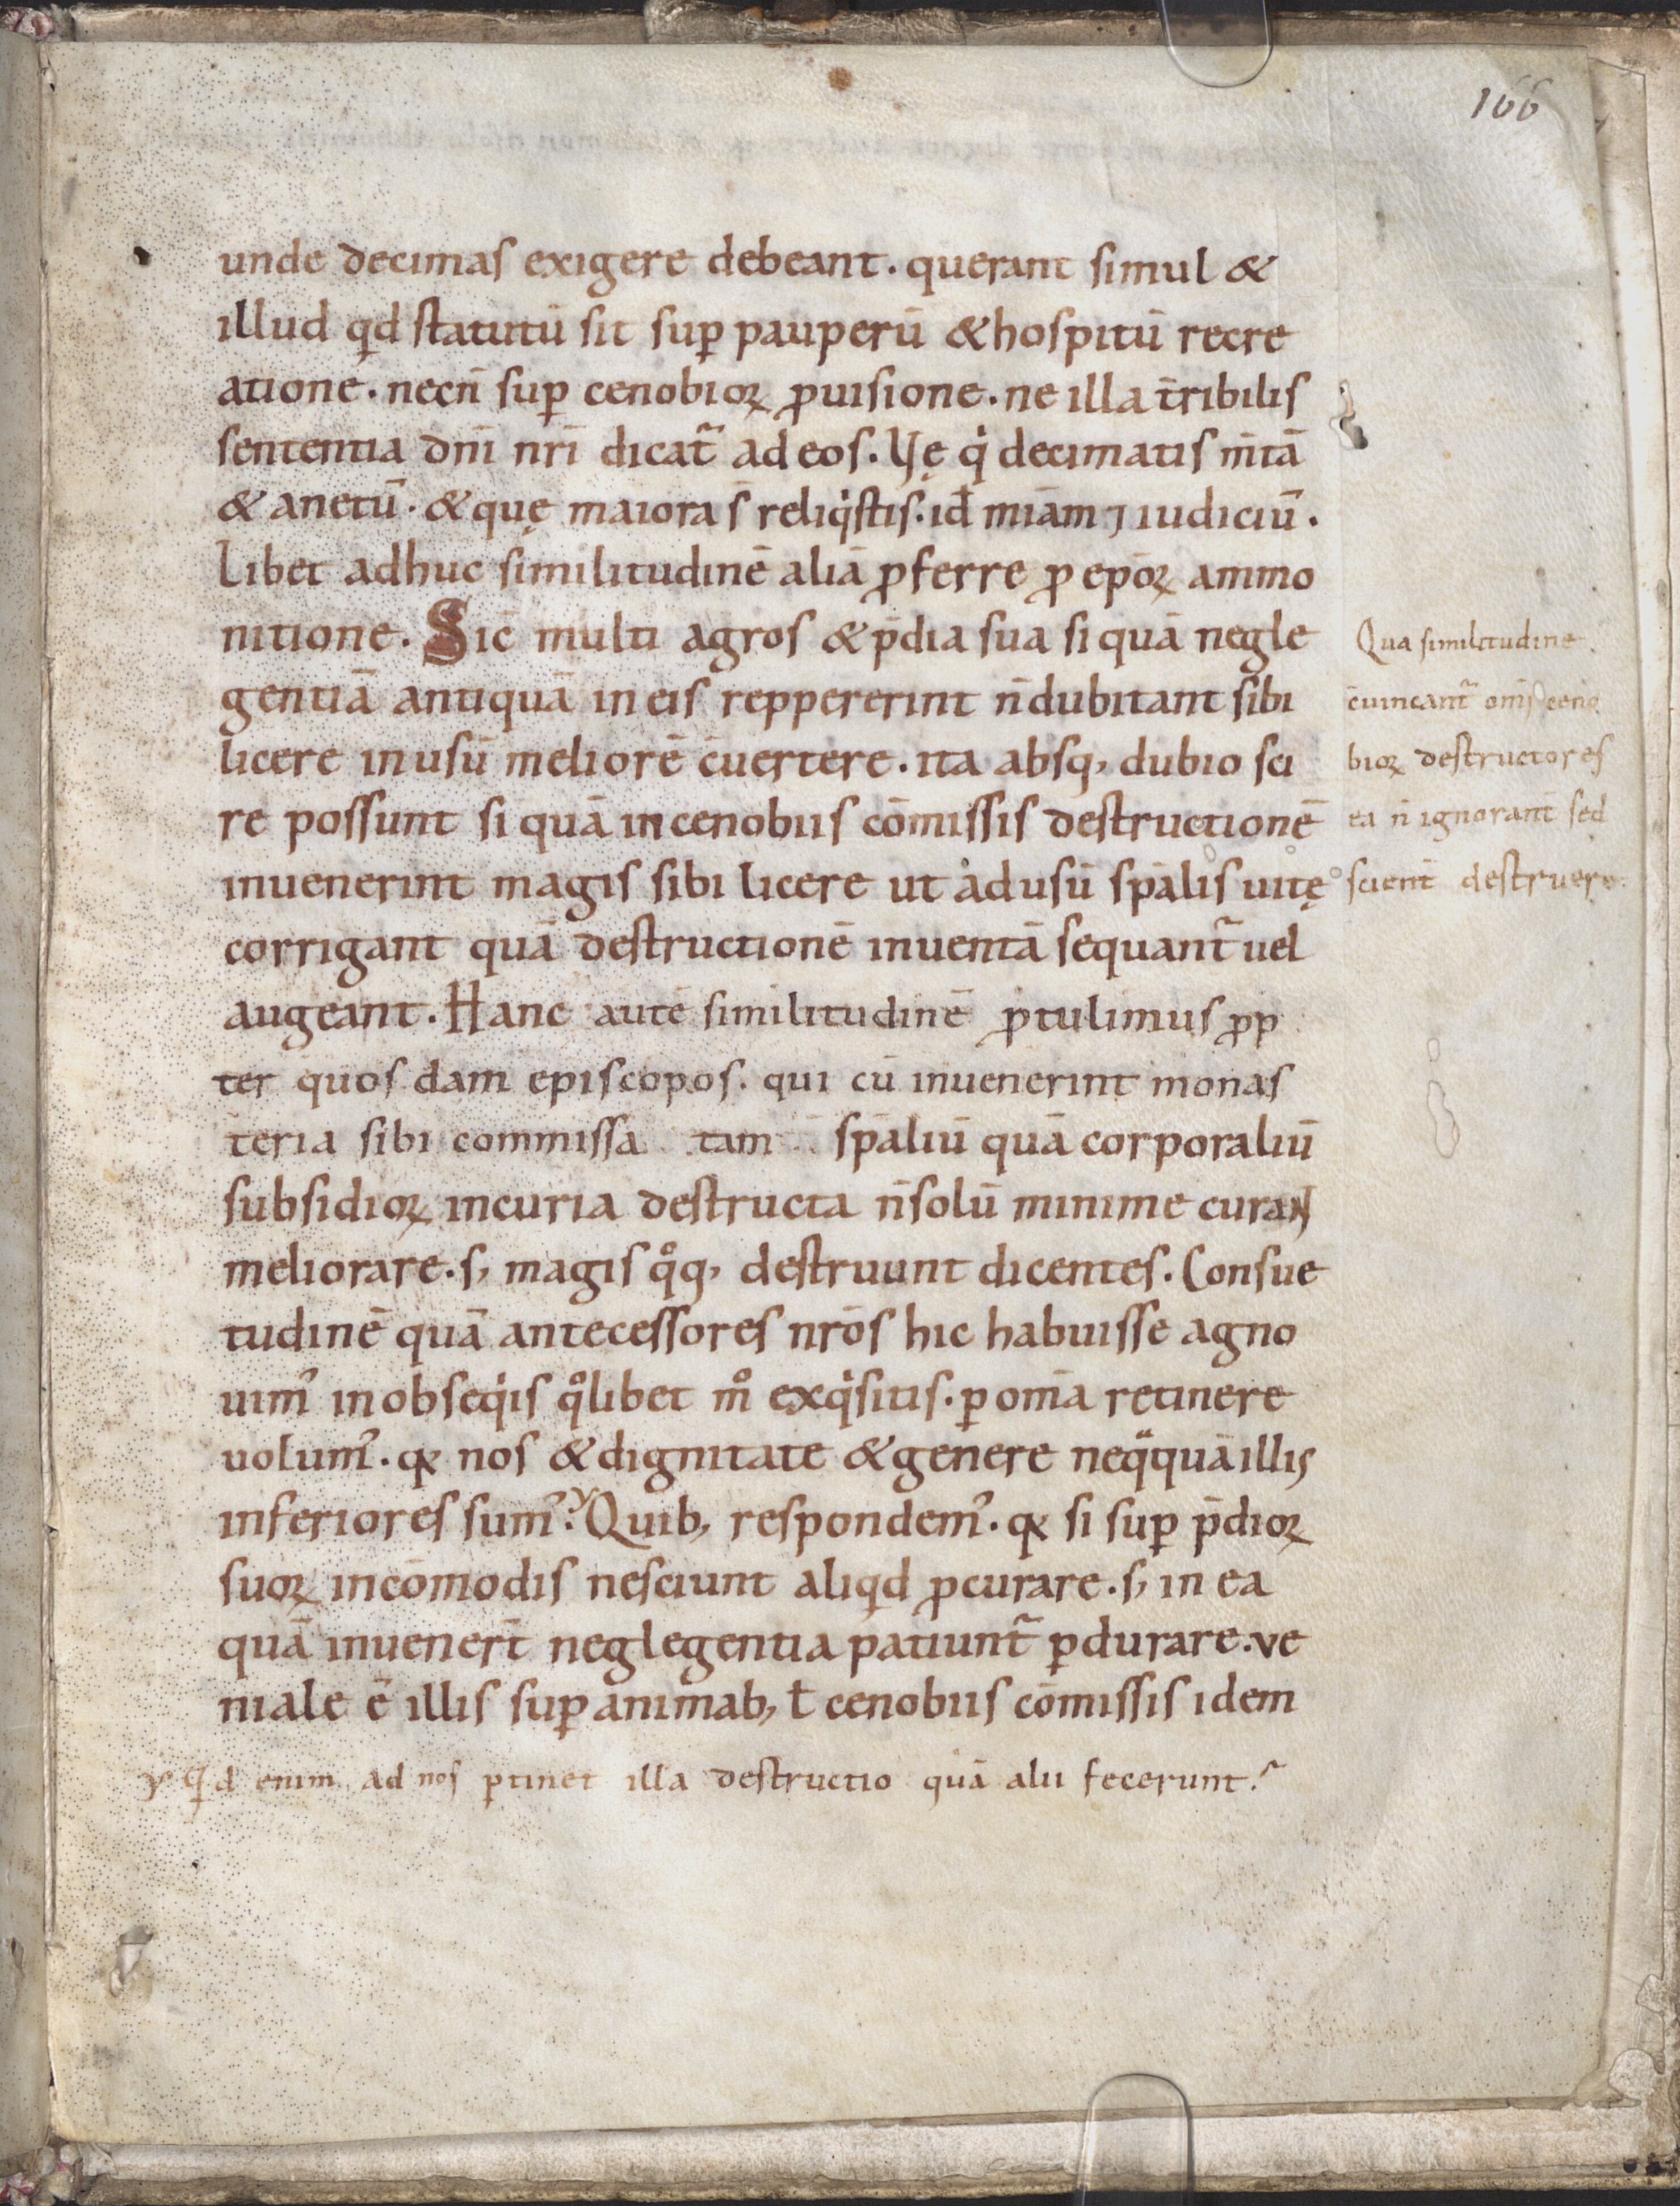 166
unde decimas exigere debeant. querant simul &
illud qd statutū sit sup̱ pauperū & hospitū recre
atione. necn̄ sup̱ cenobioꝝ ꝓuisione. ne illa t̄ribilis
sententia dn̄i nr̄i dicat̄ ad eos. Vę q̇ decimatis m̄tā
& anetū. & quę maiora s̄ reliq̇stis. id̄ miām ⁊ iudiciū.
Libet adhuc similitudinē aliā ꝓferre ꝓ ep̄oꝝ ammo
nitione. Sic̄ multi agros & p̄dia sua si quā negle
gentiā antiquā in eis reppererint n̄ dubitant sibi
licere in usū meliorē c̄uertere. ita absq, dubio sci
re possunt si quā in cenobiis cōmissis destructionē
inuenerint magis sibi licere ut ad usū sp̄alis uitę
corrigant quā destructionē inuentā sequant̄ uel
augeant. Hanc autē similitudinē ꝓtulimus ꝓp
ter quosdam episcopos. qui cū inuenerint monas
teria sibi commissa tam sp̄aliū quā corporaliū
subsidioꝝ incuria destructa n̄ solū minime curant
meliorare. s, magis qͦq, destruunt dicentes. Consue
tudinē quā antecessores nr̄os hic habuisse agno
uimꝰ in obseq̇is qͦlibet mͦ exq̇sitis. ꝑ om̄a retinere
uolumꝰ. qꝫ nos & dignitate & genere neqͣquā illis
inferiores sumꝰ. Quib, respondemꝰ. qꝫ si sup̱ p̄dioꝝ
suoꝝ incōmodis nesciunt aliqd ꝓcurare. s, in ea
quā inuener̄t neglegentia patiunt̄ ꝑdurare. ve
niale ē illis sup̱ animab, ł cenobiis cōmissis idem
qd enim ad nos ꝑtinet illa destructio quā alii fecerunt.
Qua similitudine
c̄uincant̄ om̄s ceno
bioꝝ destructores
ea n̄ ignorant̄ sed
scient̄ destruere.